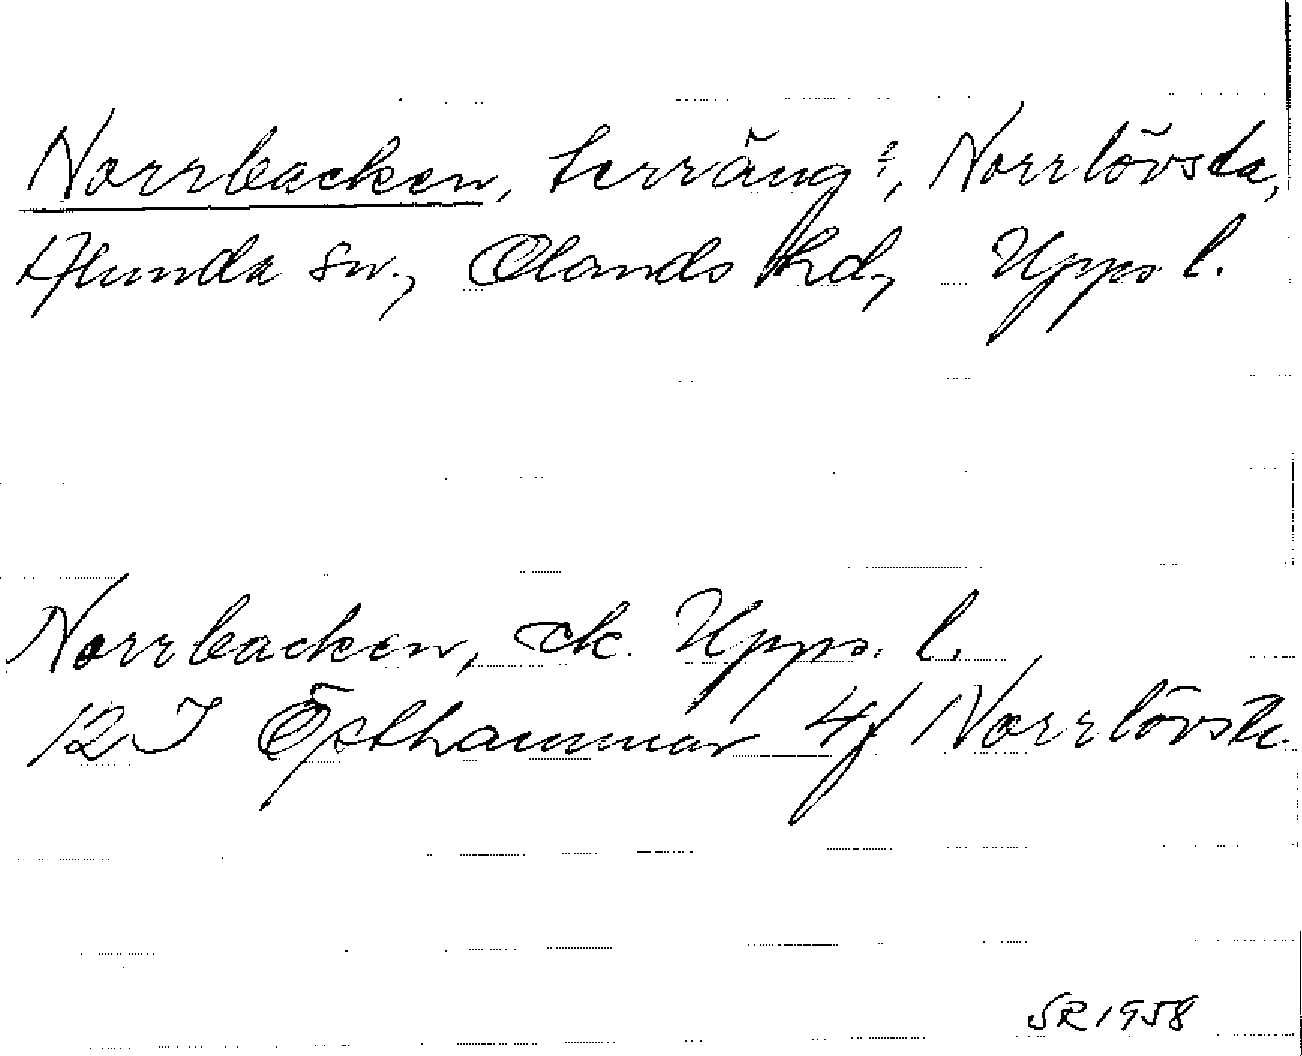 Norrbacken, terräng?, Norrlövsta,
Alunda sn., Olands hd, Upps l.
Norrbacken, ek. Upps. l.
12 I Östhammar 4f Norrlövsta
SR 1958